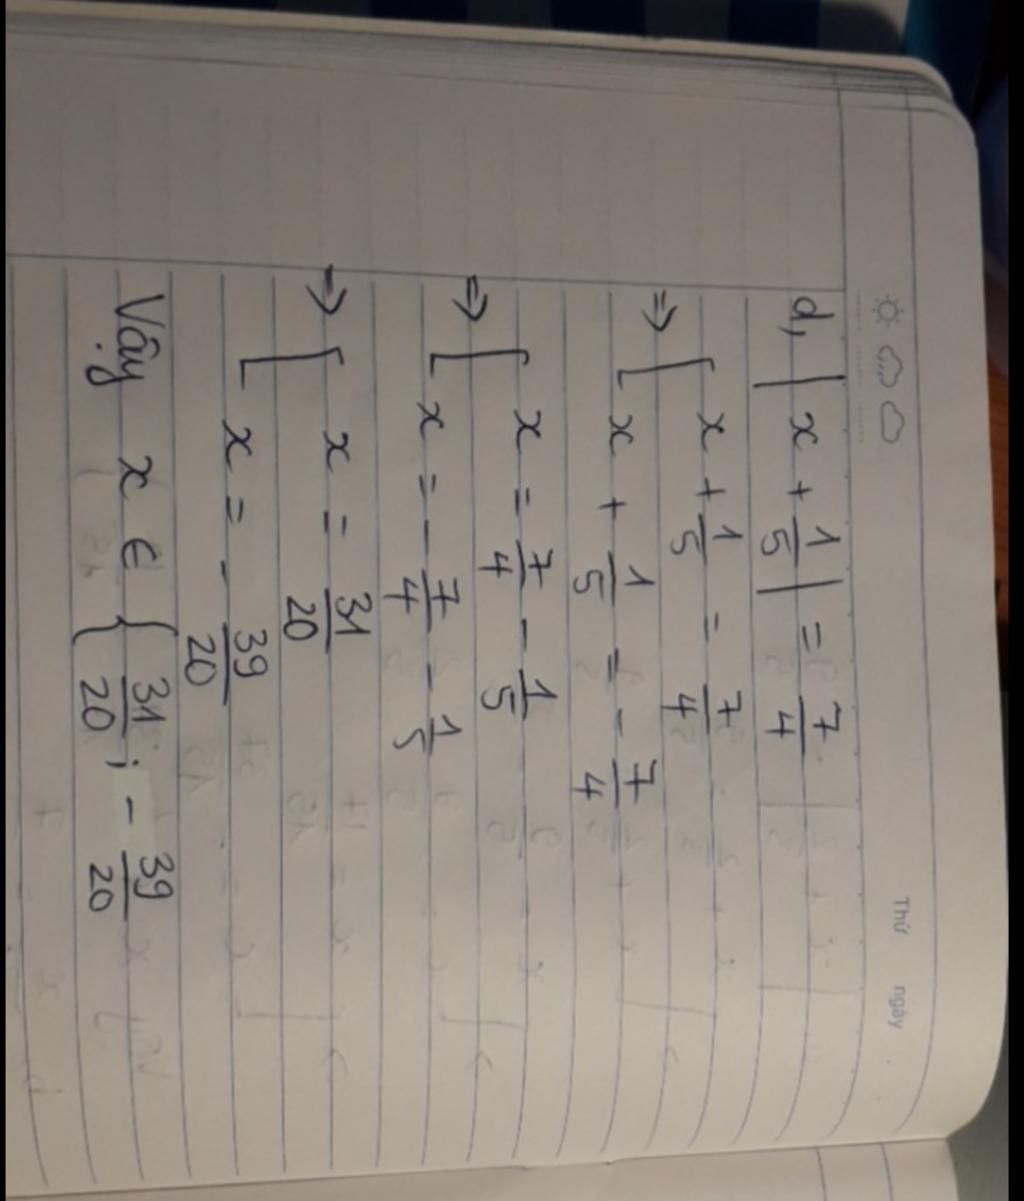 Thứ ngày
d, | x + 1/5 | = 7/4
=> [ x + 1/5 = 7/4
x + 1/5 = - 7/4
=> [ x = 7/4 - 1/5
x = - 7/4 - 1/5
=> [ x = 31/20
x = - 39/20
Vậy x ∈ { 31/20 ; - 39/20